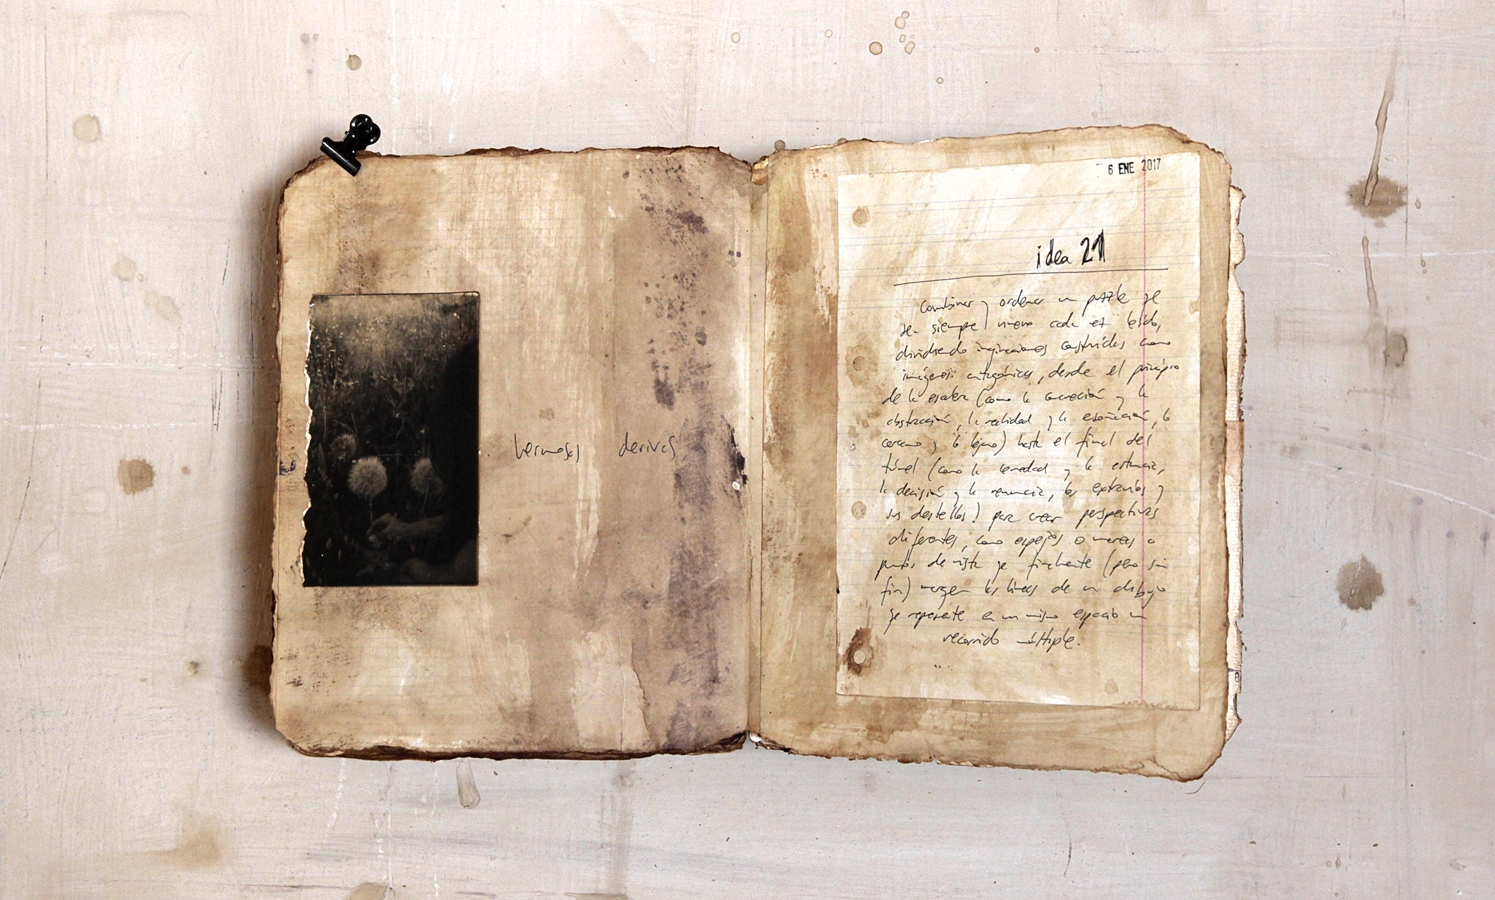 hermosas derivas
6 ENE 2017
idea 21
Combinar y ordenar un puzzle que
sea siempre nuevo cada vez leído,
dividiendo imaginaciones construidas como
imágenes antagónicas, desde el principio
de la escalera (como la concreción y la
abstracción, la realidad y la ensoñación, lo
cercano y lo lejano) hasta el final del
túnel (como la y la estancia,
la decisión y la renuncia, los extraños y
sus destellos) para crear perspectivas
diferentes, como espejos o mareas o
puntos de vista que finalmente (pero sin
fin) mezclen las líneas de un dibujo
que represente en un mismo espacio un
recorrido múltiple.
...